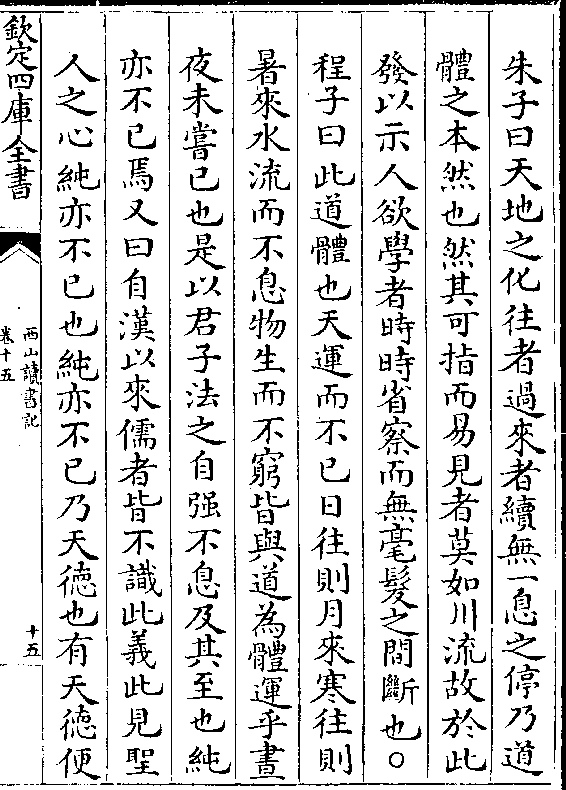 朱子曰天地之化往者過來者續無一息之停乃道
體之本然也然其可指而易見者莫如川流故於此
發以示人欲學者時時省察而無毫髮之間斷也○
程子曰此道體也天運而不已日往則月來寒往則
暑來水流而不息物生而不窮皆與道為體運乎晝
夜未嘗已也是以君子法之自强不息及其至也純
亦不已焉又曰自漢以來儒者皆不識此義此見聖
人之心純亦不已也純亦不已乃天德也有天德便
欽定四庫全書
西山讀書記
卷十五
十五